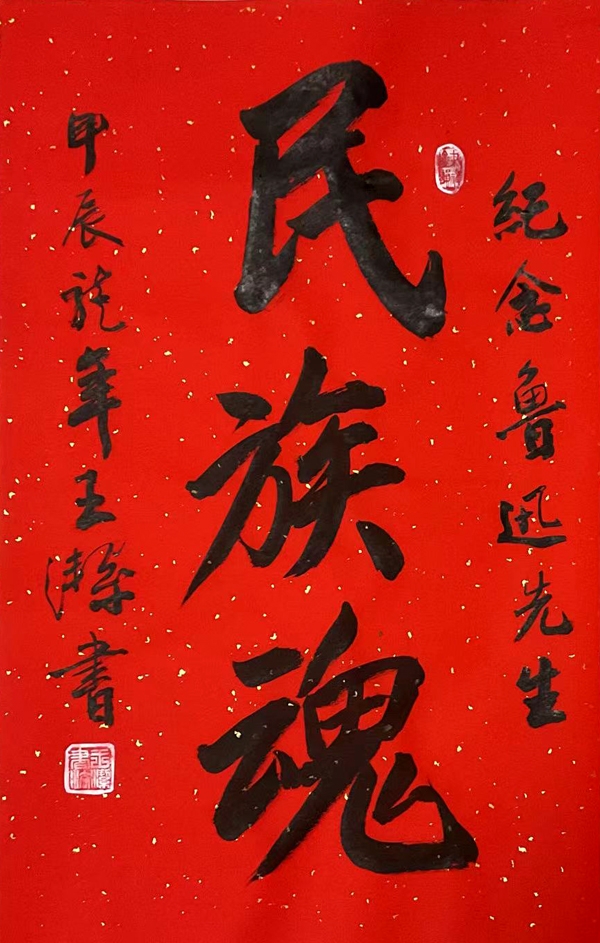 紀念鲁迅先生
民族魂
甲辰龍年王潔書